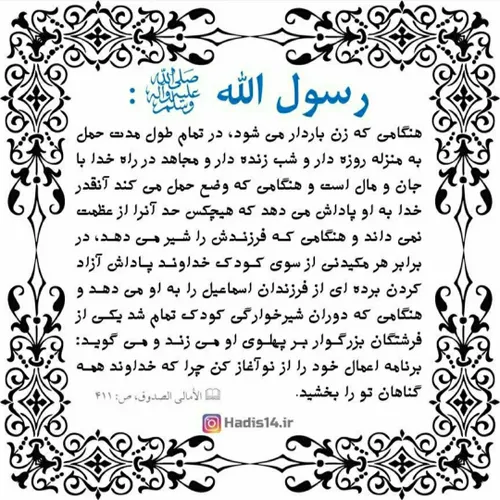 رسول الله ﷺ :
هنگامی که زن باردار می شود، در تمام طول مدت حمل
به منزله روزه دار و شب زنده دار و مجاهد در راه خدا با
جان و مال است و هنگامی که وضع حمل می کند آنقدر
خدا به او پاداش می دهد که هیچکس حد آنرا از عظمت
نمی داند و هنگامی که فرزندش را شیر می دهد، در
برابر هر مکیدنی از سوی کودک خداوند پاداش آزاد
کردن برده ای از فرزندان اسماعیل را به او می دهد و
هنگامی که دوران شیرخوارگی کودک تمام شد یکی از
فرشتگان بزرگوار بر پهلوی او می زند و می گوید:
برنامه اعمال خود را از نوآغاز کن چرا که خداوند همه
گناهان تو را بخشید.
الأمالی الصدوق، ص: ۴۱۱
Hadis14.ir